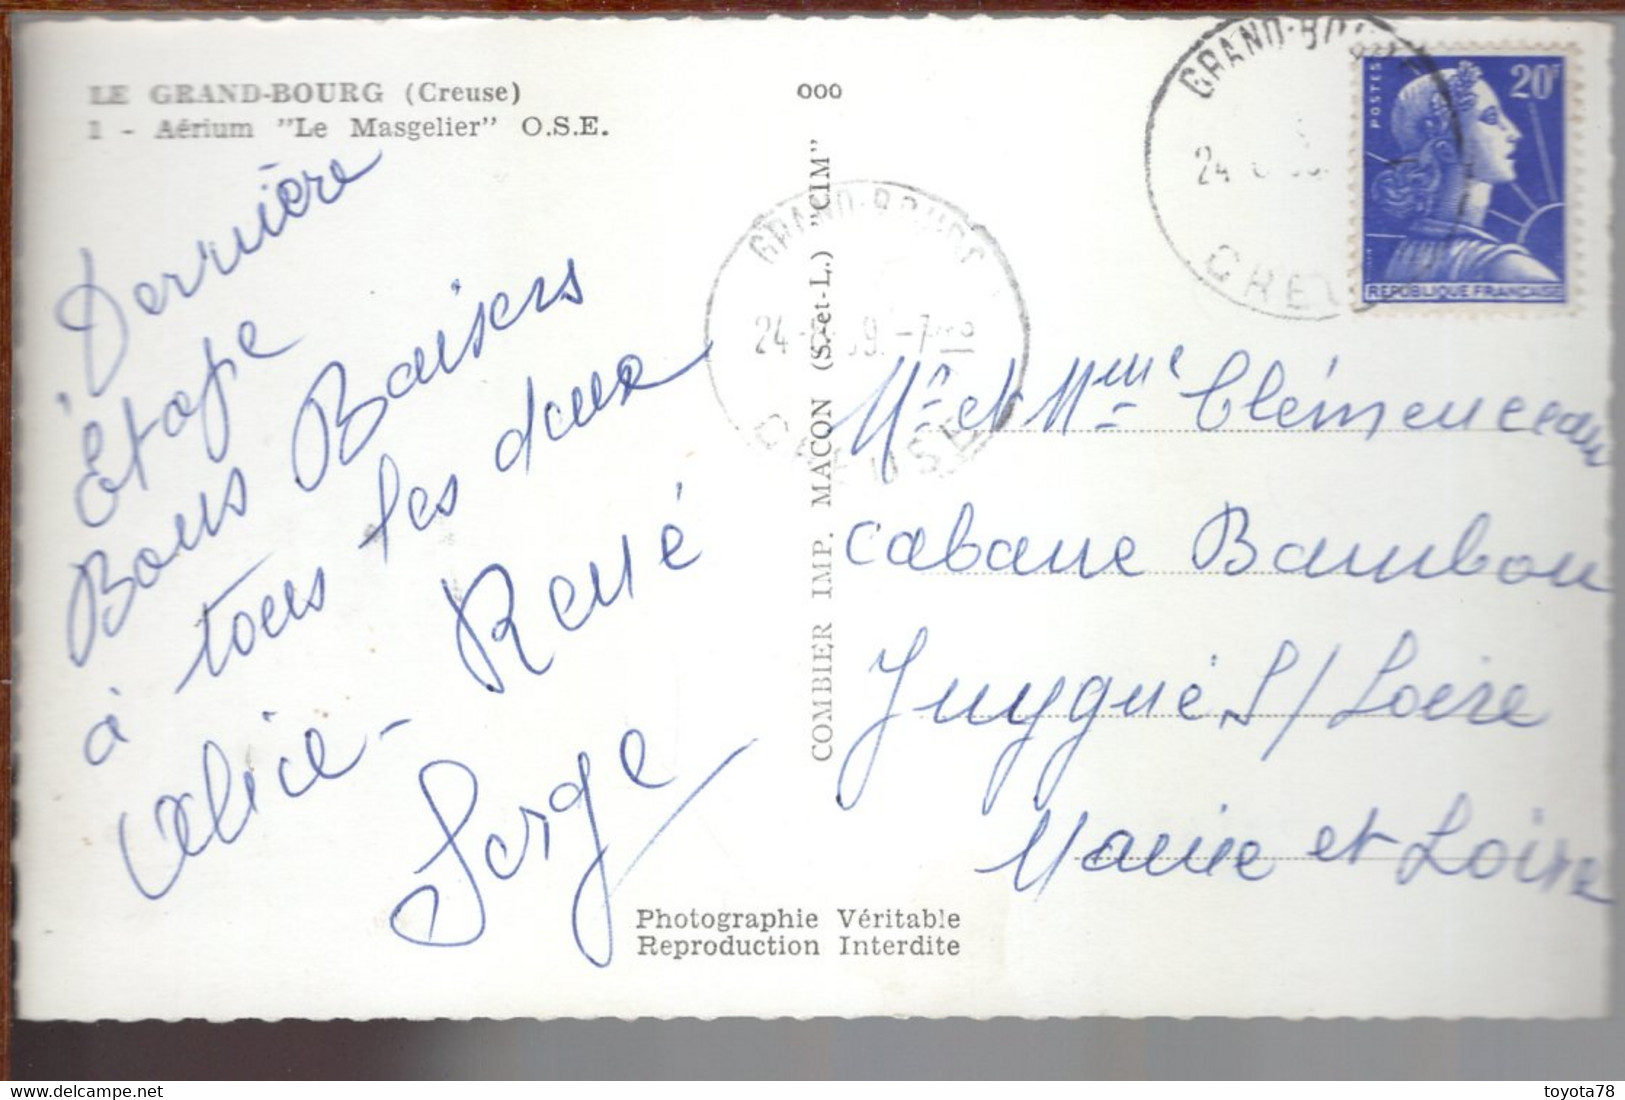 LE GRAND-BOURG (Creuse)
1 - Aérium "Le Masgelier" O.S.E.
ooo
Derrière
Étape
Bons Baisers
à tous les deux
Alice - René
Serge
COMBIER IMP. MACON (S.-et-L.) "CIM"
Photographie Véritable
Reproduction Interdite
GRAND-BOURG
24
CREUSE
GRAND-BOURG
24
CREUSE
POSTES
20F
REPUBLIQUE FRANCAISE
Mr et Mme Clémenceau
Cabane Bambou
Juygné S/Loire
Maine et Loire
delcampe.net
toyota78